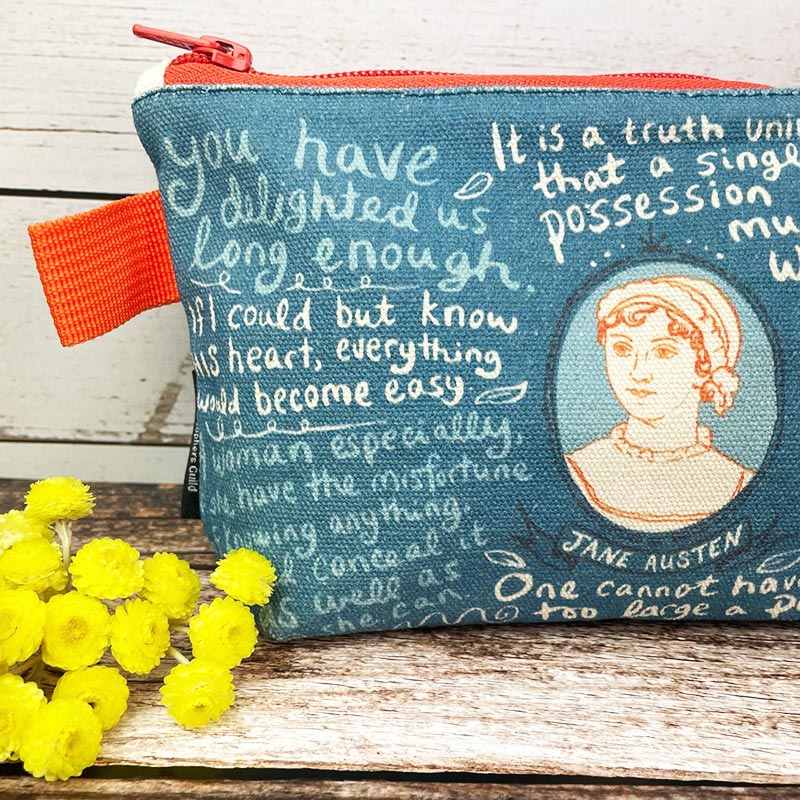 you have
delighted us
long enough.
If I could but know
his heart, everything
would become easy
woman especially,
have the misfortune
anything,
conceal it
well as
she can
It is a truth
that a
possession
JANE AUSTEN
One cannot have
too large a
Guild